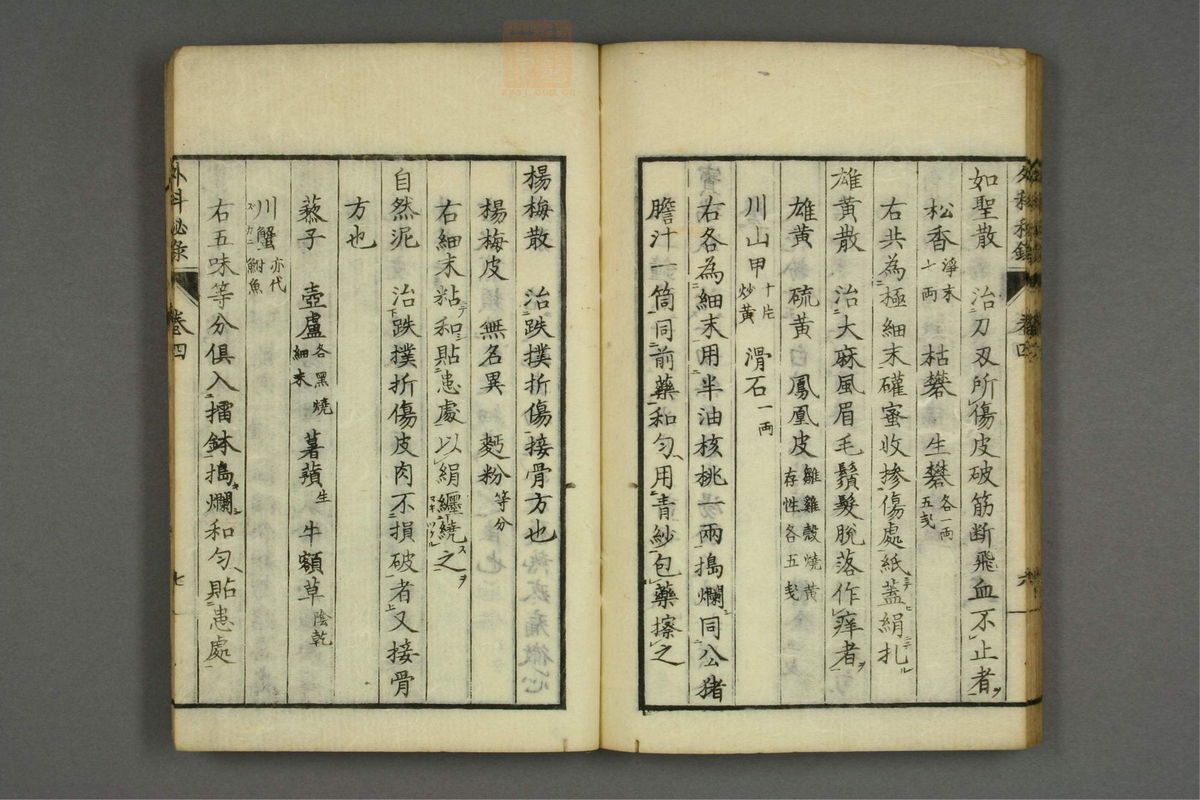 如聖散　治刀刄所傷皮破筋断飛血不止者
松香淨末七両　枯礬　生礬各一両五戔
右共為極細末礶蜜收摻傷處紙蓋絹扎
雄黄散　治大麻風眉毛鬚髮脫落作痒者
雄黄　硫黄　鳳凰皮雛雞殼燒黄存性各五戔
川山甲十片炒黄　滑石一両
右各為細末用半油核桃一兩搗爛同公猪
膽汁一筒同前藥和匀用青紗包藥擦之
楊梅散　治跌撲折傷接骨方也
楊梅皮　無名異　麪粉等分
右細末粘和貼患處以絹纒繞之
自然泥　治跌撲折傷皮肉不損破者又接骨
方也
菾子　壺盧各黑燒細末　薯蕷生　牛額草陰乾
川蟹亦代鮒魚
右五味等分俱入擂鉢搗爛和匀貼患處
外科秘录　卷四　七